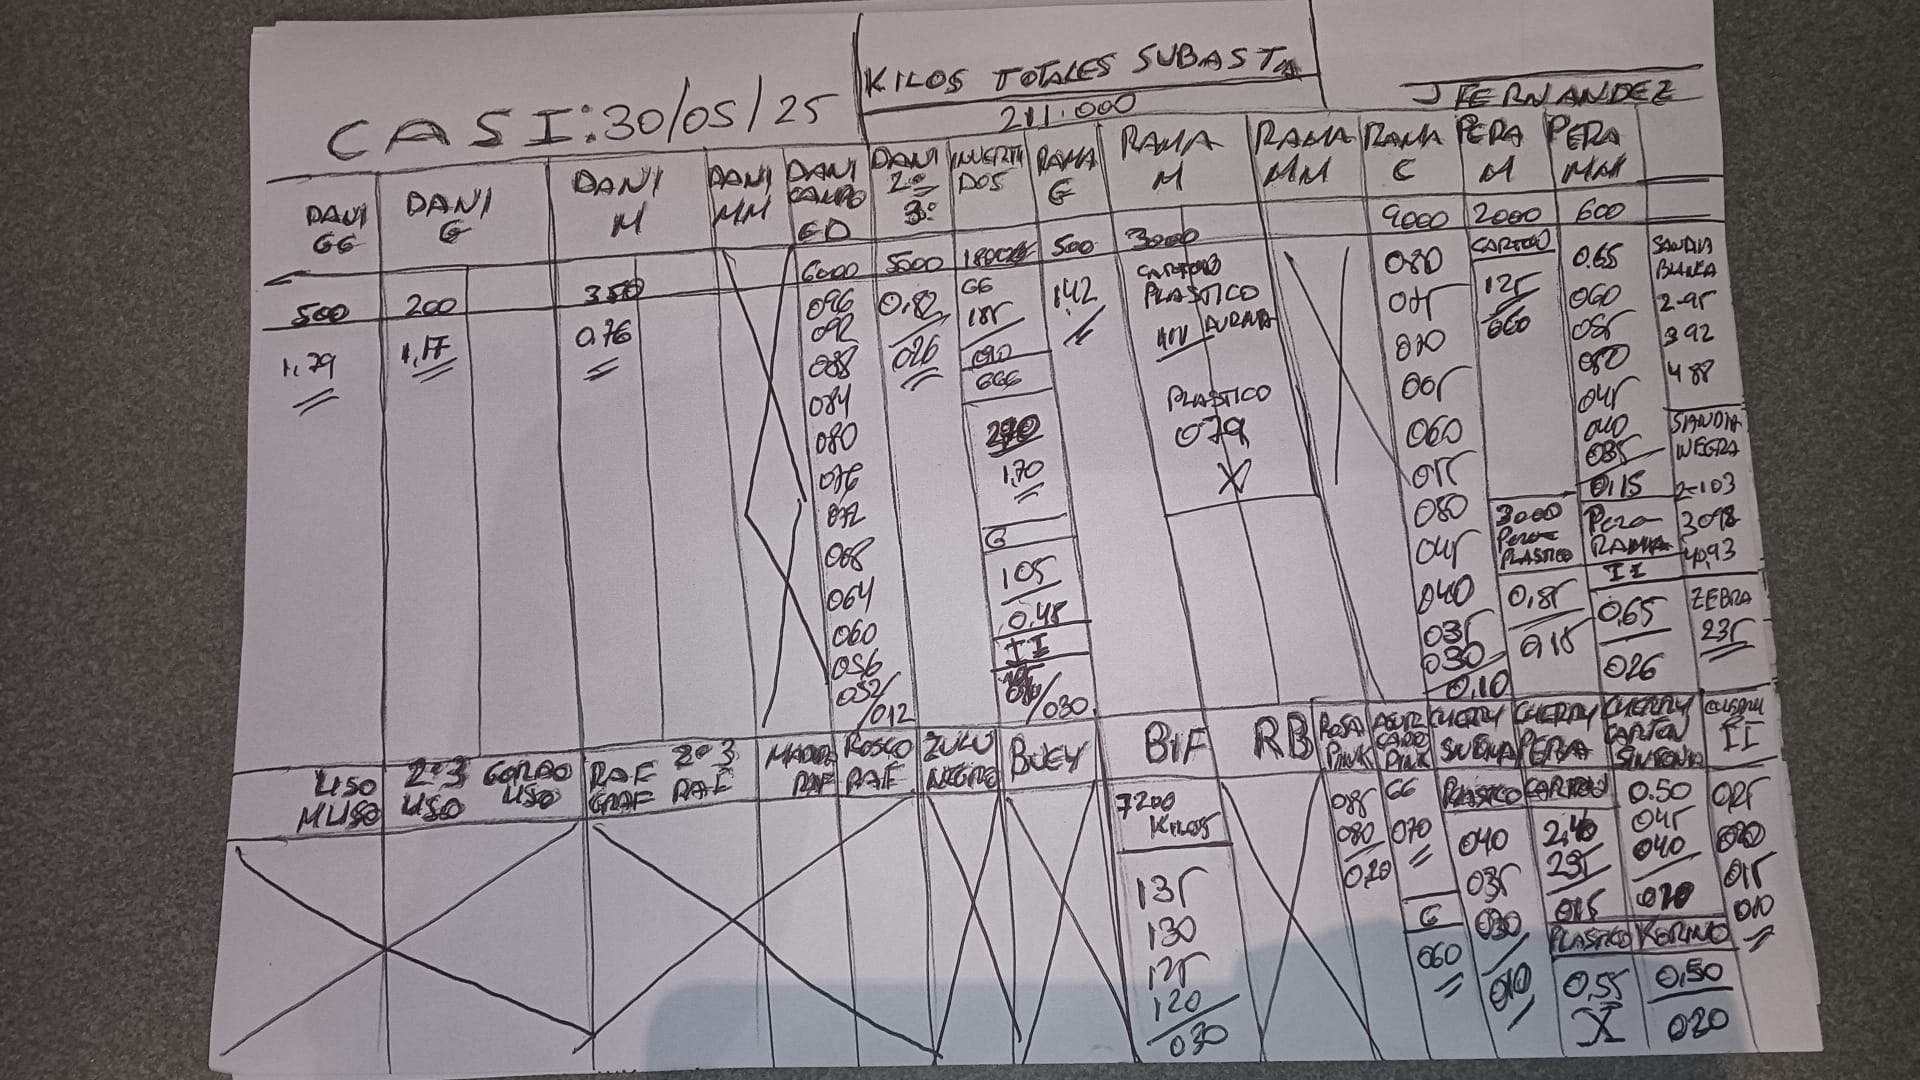 CASI: 30/05/25
KILOS TOTALES SUBASTA
211.000
J FERNANDEZ
DANI
GG
500
1,79
DANI
G
200
1,17
DANI
M
350
0,76
DANI
MM
DANI
CAMPO
GD
6000
096
092
088
084
080
076
072
068
064
060
056
052
012
DANI
2º
3º
5500
0,82
026
INVERTI
DOS
GG
185
090
GGG
1,70
G
105
0,48
II
030
RAMA
G
500
1,42
RAMA
M
3000
CARTON
PLASTICO
PLASTICO
079
X
RAMA
MM
RAMA
C
9000
080
075
070
065
060
055
050
045
040
035
030
0,10
PERA
M
2000
CARTON
125
060
3000
Pera
PLASTICO
0,85
0,15
PERA
MM
600
0.65
060
055
050
045
040
035
0,15
Pera
RAMA
II
0,65
026
SANDIA
BLANCA
2-95
3 92
4 88
SIANDIA
NEGRA
2-103
3 098
4 0,93
ZEBRA
235
LISO
M LISO
2º3
LISO
GORDO
LISO
RAF
GRAF
2º3
RAF
MADUR
RAF
ROSCO
RAF
ZULU
NEGRO
BUEY
BIF
7200
KILOS
135
130
125
120
030
RB
ROSA
PINK
085
080
020
PINK
GG
070
G
060
CHERRY
SINTONIA
PLASTICO
040
035
030
010
CHERRY
PERA
CARTON
2,40
235
015
PLASTICO
0,55
X
CHERRY
CARTON
SINTONIA
0.50
045
040
020
KORINO
0,50
020
II
025
020
015
010